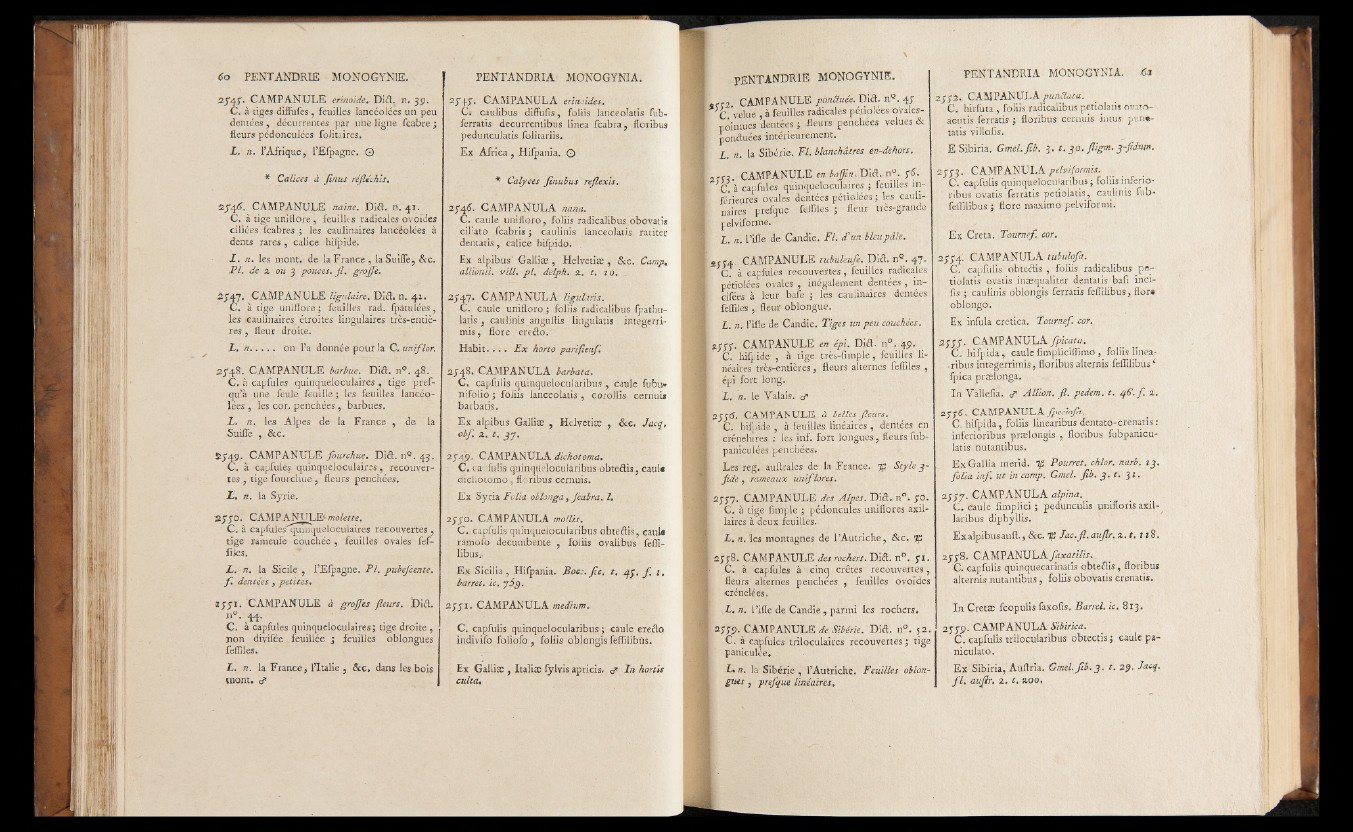 60 PENTANDRIE MONOGYNIE.
2545. CAMPANULE érinoïde. Dict. n. 39.
C. à tiges diffuses, feuilles lancéolées un peu
dentées, décurrentes par une ligne scabre;
fleurs pédonculées solitaires.
L. n. l'Afrique, l'Espagne. ☉
* Calices à sinus réfléchis.
2546. CAMPANULE naine. Dict. n. 41.
C. à tige uniflore, feuilles radicales ovoïdes
ciliées scabres; les caulinaires lancéolées à
dents rares, calice hispide.
L. n. les mont. de la France, la Suisse, &c.
Pl. de 2 ou 3 pouces. fl. grosse.
2547. CAMPANULE ligulaire. Dict. n. 42.
C. à tige uniflore; feuilles rad. spatulées,
les caulinaires étroites lingulaires très-entiè-
res, fleur droite.
L. n..... on l'a donnée pour la C. uniflor.
2548. CAMPANULE barbue. Dict. n°. 48.
C. à capsules quinqueloculaires, tige pres-
qu'à une seule feuille; les feuilles lancéo-
lées, les cor. penchées, barbues.
L. n. les Alpes de la France, de la
Suisse, &c.
2549. CAMPANULE fourchue. Dict. n°. 43.
C. à capsules quinqueloculaires, recouver-
tes, tige fourchue, fleurs penchées.
L. n. la Syrie.
2550. CAMPANULE molette.
C. à capsules quinqueloculaires recouvertes,
tige rameuse couchée, feuilles ovales ses-
siles.
L. n. la Sicile, l'Espagne. Pl. pubescente.
f. dentées, petites.
2551. CAMPANULE à grosses fleurs. Dict.
n°. 44.
C. à capsules quinqueloculaires; tige droite,
non divisée feuillée; feuilles oblongues
sessiles.
L. n. la France, l'Italie, &c. dans les bois
mont. ♂
PENTANDRIA MONOGYNIA.
2545. CAMPANULA erinoides.
C. caulibus diffusis, foliis lanceolatis sub-
serratis decurrentibus linea scabra, floribus
pedunculatis solitariis.
Ex Africa, Hispania. ☉
* Calyces sinubus reflexis.
2546. CAMPANULA nana.
C. caule unifloro, foliis radicalibus obovatis
ciliato scabris; caulinis lanceolatis rariter
dentatis, calice hispido.
Ex alpibus Galliæ, Helvetiæ, &c. Camp.
allionii. vill. pl. delph. 2. t. 10.
2547. CAMPANULA ligularis.
C. caule unifloro; foliis radicalibus spathu-
latis, caulinis angustis lingulatis integerri-
mis, flore erecto.
Habit.... Ex horto parisiens.
2548. CAMPANULA barbata.
C. capsulis quinquelocularibus, caule subu-
nifolio; foliis lanceolatis, corollis cernuis
barbatis.
Ex alpibus Galliæ, Helvetiæ, &c. Jacq.
obs. 2. t. 37.
2549. CAMPANULA dichotoma.
C. capsulis quinquelocularibus obtectis, caule
dichotomo, floribus cernuis.
Ex Syria Folia oblonga, scabra. l.
2550. CAMPANULA mollis.
C. capsulis quinquelocularibus obtectis, caule
ramoso decumbente, foliis ovalibus sessi-
libus.
Ex Sicilia, Hispania. Bocc. sic. t. 45. f. 1.
barret. ic. 759.
2551. CAMPANULA medium.
C. capsulis quinquelocularibus; caule erecto
indiviso folioso, foliis oblongis sessilibus.
Ex Galliæ, Italiæ sylvis apricis. ♂ In hortis
culta.
PENTANDRIE MONOGYNIE.
2552. CAMPANULE ponctuée. Dict. n°. 45
C. velue, à feuilles radicales pétiolées ovales-
pointues dentées; fleurs penchées velues &
ponctuées intérieurement.
L. n. la Sibérie. Fl. blanchâtres en-dehors.
2553. CAMPANULE en bassin. Dict. n°. 56.
C. à capsules quinqueloculaires; feuilles in-
férieures ovales dentées pétiolées; les cauli-
naires presque sessiles; fleur très-grande
pelviforme.
L. n. l'isle de Candie. Fl. d'un bleu pâle.
2554. CAMPANULE tubuleuse. Dict. n°. 47.
C. à capsules recouvertes, feuilles radicales
pétiolées ovales, inégalement dentées, in-
cisées à leur base; les caulinaires dentées
sessiles, fleur oblongue.
L. n. l'isle de Candie. Tiges un peu couchées.
2555. CAMPANULE en épi. Dict. n°. 49.
C. hispide, à tige très-simple, feuilles li-
néaires très-entières, fleurs alternes sessiles,
épi fort long.
L. n. le Valais. ♂
2556. CAMPANULE à belles fleurs.
C. hispide, à feuilles linéaires, dentées en
crénelures; les inf. fort longues, fleurs sub-
paniculées penchées.
Les reg. australes de la France. ♃ Style 3-
fide, rameaux uniflores.
2557. CAMPANULE des Alpes. Dict. n°. 50.
C. à tige simple; pédoncules uniflores axil-
laires à deux feuilles.
L. n. les montagnes de l'Autriche, &c. ♃
2558. CAMPANULE des rochers. Dict. n°. 51.
C. à capsules à cinq crêtes recouvertes,
fleurs alternes penchées, feuilles ovoïdes
crénelées.
L. n. l'isle de Candie, parmi les rochers.
2559. CAMPANULE de Sibérie. Dict. n°. 52.
C. à capsules triloculaires recouvertes; tige
paniculée.
L. n. la Sibérie, l'Autriche. Feuilles oblon-
gues, presque linéaires.
PENTANDRIA MONOGYNIA. 61
2552. CAMPANULA punctata.
C. hirsuta, foliis radicalibus petiolatis ovato-
acutis serratis; floribus cernuis intus punc-
tatis villosis.
E Sibiria. Gmel. sib. 3. t. 30. stigm. 3-fidum.
2553. CAMPANULA pelviformis.
C. capsulis quinquelocularibus; foliis inferio-
ribus ovatis serratis petiolatis, caulinis sub-
sessilibus; flore maximo pelviformi.
Ex Creta. Tournef. cor.
2554. CAMPANULA tubulosa.
C. capsulis obtectis, foliis radicalibus pe-
tiolatis ovatis inæqualiter dentatis basi inci-
sis; caulinis oblongis serratis sessilibus, flore
oblongo.
Ex insula cretica. Tournef. cor.
2555. CAMPANULA spicata.
C. hispida, caule simplicissimo, foliis linea-
ribus integerrimis, floribus alternis sessilibus
spica prælonga.
In Vallesia. ♂ Allion. fl. pedem. t. 46. f. 2.
2556. CAMPANULA speciosa.
C. hispida, foliis linearibus dentato-crenatis:
inferioribus prælongis, floribus subpanicu-
latis nutantibus.
Ex Gallia merid. ♃ Pourret. chlor. narb. 13.
folia inf. ut in camp. Gmel. sib. 3. t. 31.
2557. CAMPANULA alpina.
C. caule simplici; pedunculis unifloris axil-
laribus diphyllis.
Ex alpibus aust., &c. ♃ Jac. fl. austr. 2. t. 118.
2558. CAMPANULA saxatilis.
C. capsulis quinquecarinatis obtectis, floribus
alternis nutantibus, foliis obovatis crenatis.
In Cretæ scopulis saxosis. Barrel. ic. 813.
2559. CAMPANULA Sibirica.
C. capsulis trilocularibus obtectis; caule pa-
niculato.
Ex Sibiria, Austria. Gmel. sib. 3. t. 29. Jacq.
fl. austr. 2. t. 200.